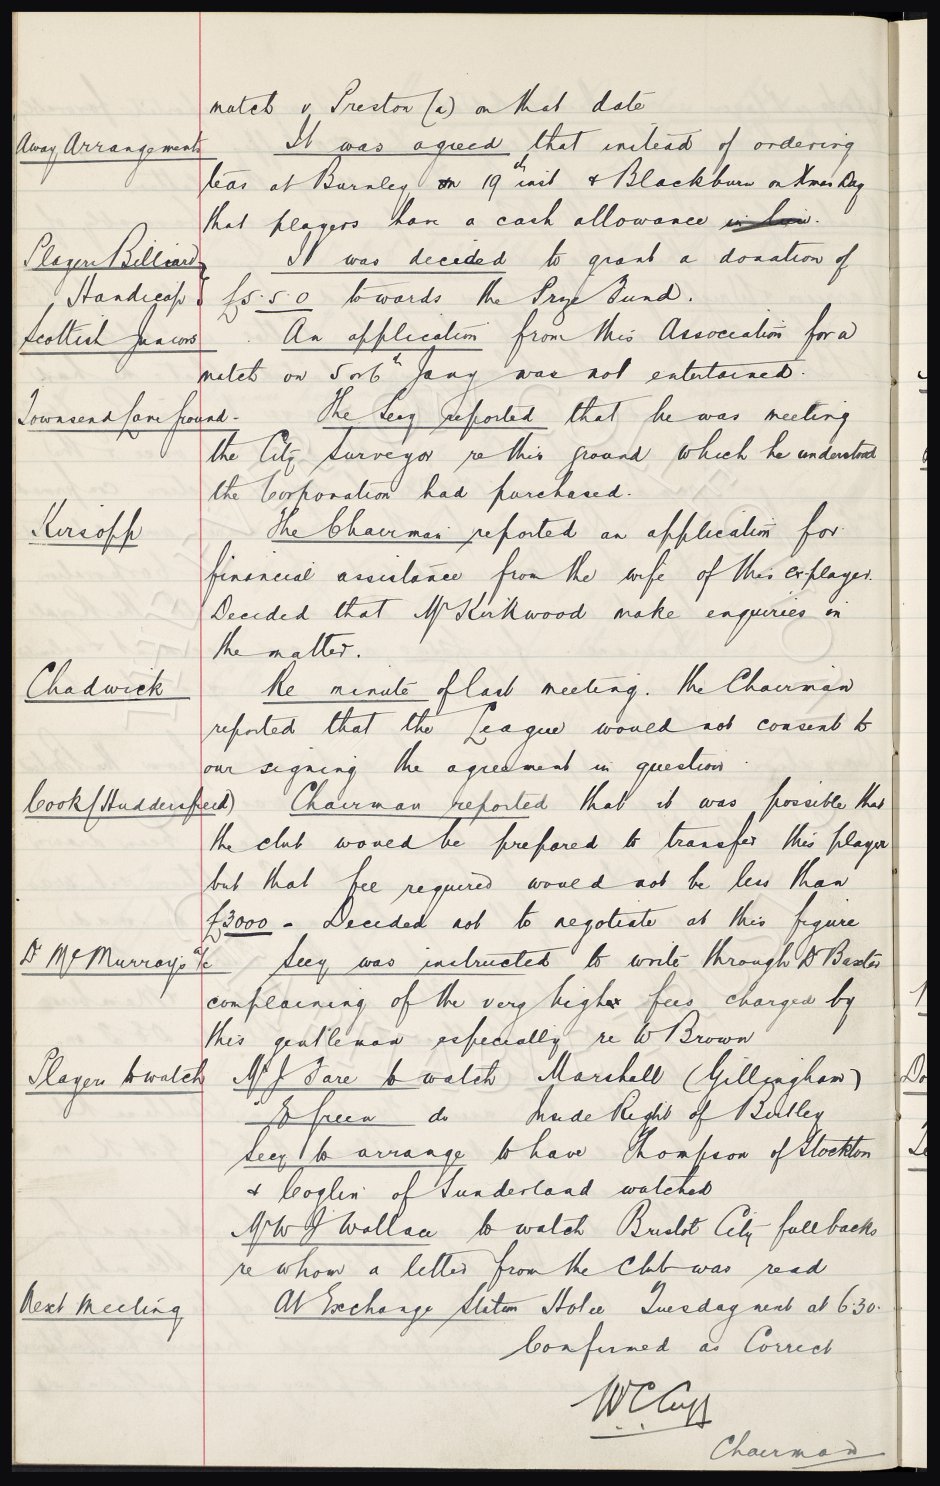 match v Preston (a) on that date
Away Arrangements It was agreed that instead of ordering
teas at Burnley on 19th inst & Blackburn on Xmas Day
that players have a cash allowance in lieu.
Players Billiard It was decided to grant a donation of
Handicap £5.5.0 towards the Prize Fund.
Scottish Juniors An application from this Association for a
match on 5 or 6th Jany was not entertained.
Townsend Lane Ground - The Secy reported that he was meeting
the City Surveyor re this ground which he understood
the Corporation had purchased.
Kirsopp The Chairman reported an application for
financial assistance from the wife of this explayer.
Decided that Mr Kirkwood make enquiries in
the matter.
Chadwick Re minute of last meeting. The Chairman
reported that the League would not consent to
our signing the agreement in question.
Cook (Huddersfield) Chairman reported that it was possible that
the club would be prepared to transfer this player
but that fee required would not be less than
£3000 - Decided not to negotiate at this figure
Dr McMurray's a/c Secy was instructed to write through Dr Baxter
complaining of the very high fees charged by
this gentleman especially re W Brown
Players to watch Mr J Fare to watch Marshall (Gillingham)
" E Green do Inside Right of Butley
Secy to arrange to have Thompson of Stockton
& Coglin of Sunderland watched
Mr W J Wallace to watch Bristol City full backs
re whom a letter from the Club was read
Next Meeting At Exchange Station Hotel Tuesday next at 6.30.
Confirmed as Correct
WC Cuff
Chairman